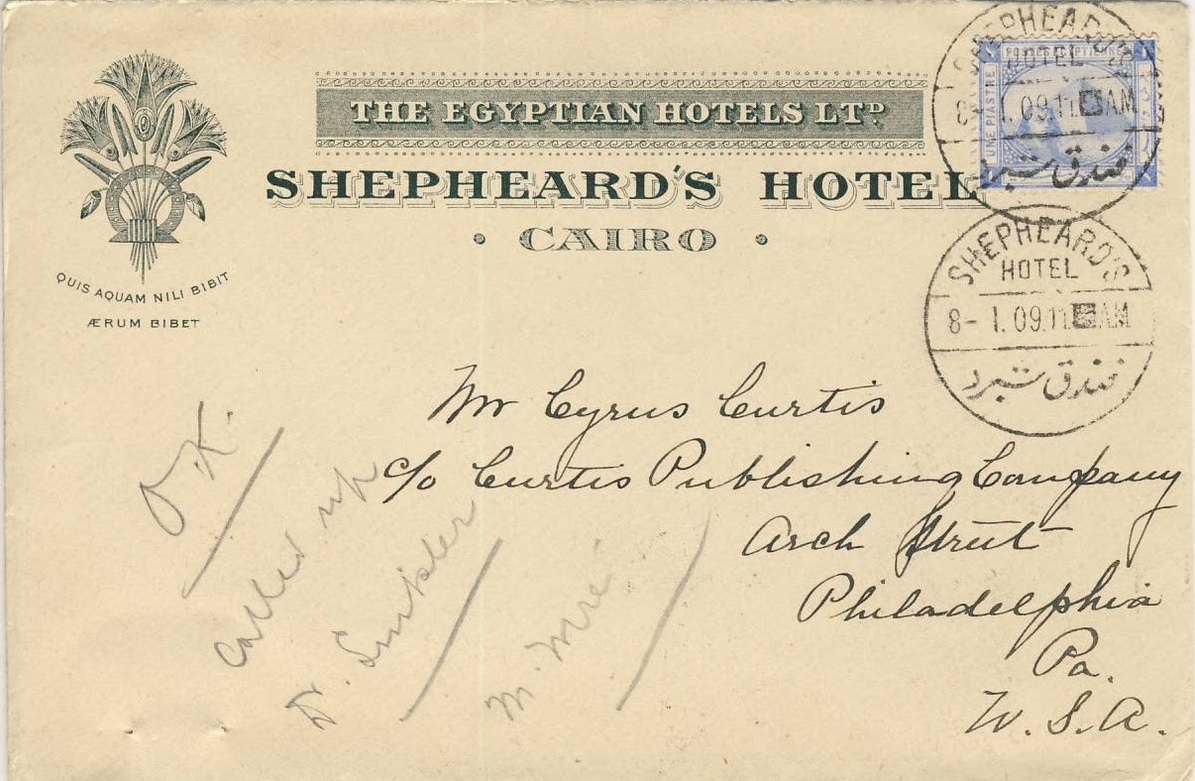 THE EGYPTIAN HOTELS LTD.
SHEPHEARD'S HOTEL
• CAIRO •
QUIS AQUAM NILI BIBIT
ÆRUM BIBET
POSTES EGYPTIENNES
UNE PIASTRE
SHEPHEARD'S
HOTEL
8- I. 09.11 AM
فندق شبرد
SHEPHEARD'S
HOTEL
8- I. 09.11 AM
فندق شبرد
Mr Cyrus Curtis
c/o Curtis Publishing Company
Arch Street
Philadelphia
Pa.
U. S. A.
O.K.
Called up
Dr.
M.